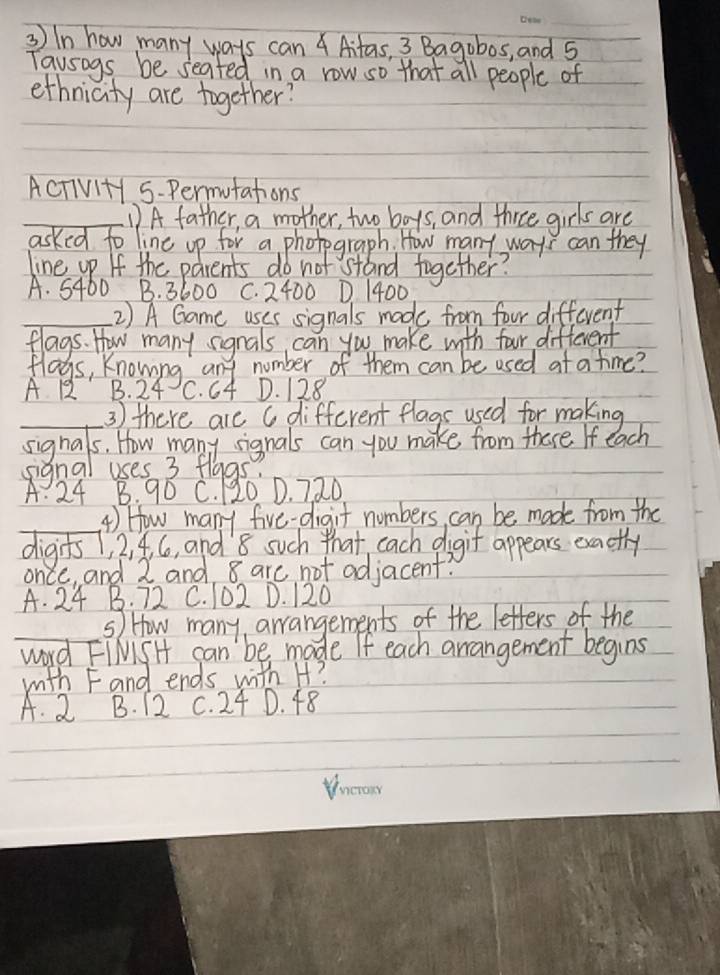 Date
3) In how many ways can 4 Aitas, 3 Bagobos, and 5
Tausogs be seated in a row so that all people of
ethnicity are together?
ACTIVITY 5-Permutations
1) A father, a mother, two boys, and three girls are
asked to line up for a photograph. How many ways can they
line up If the parents do not stand together?
A. 5400 B. 3600 C. 2400 D. 1400
2) A Game uses signals made from four different
flags. How many signals can you make with four different
flags, Knowing any number of them can be used at a time?
A. 12 B. 24 C. 64 D. 128
3) there are 6 different flags used for making
signals. How many signals can you make from these If each
signal uses 3 flags?
A. 24 B. 90 C. 120 D. 720
4) How many five-digit numbers can be made from the
digits 1, 2, 4, 6, and 8 such that each digit appears exactly
once, and 2 and 8 are not adjacent?
A. 24 B. 72 C. 102 D. 120
5) How many arrangements of the letters of the
word FINISH can be made If each arrangement begins
with F and ends with H?
A. 2 B. 12 C. 24 D. 48
VICTORY